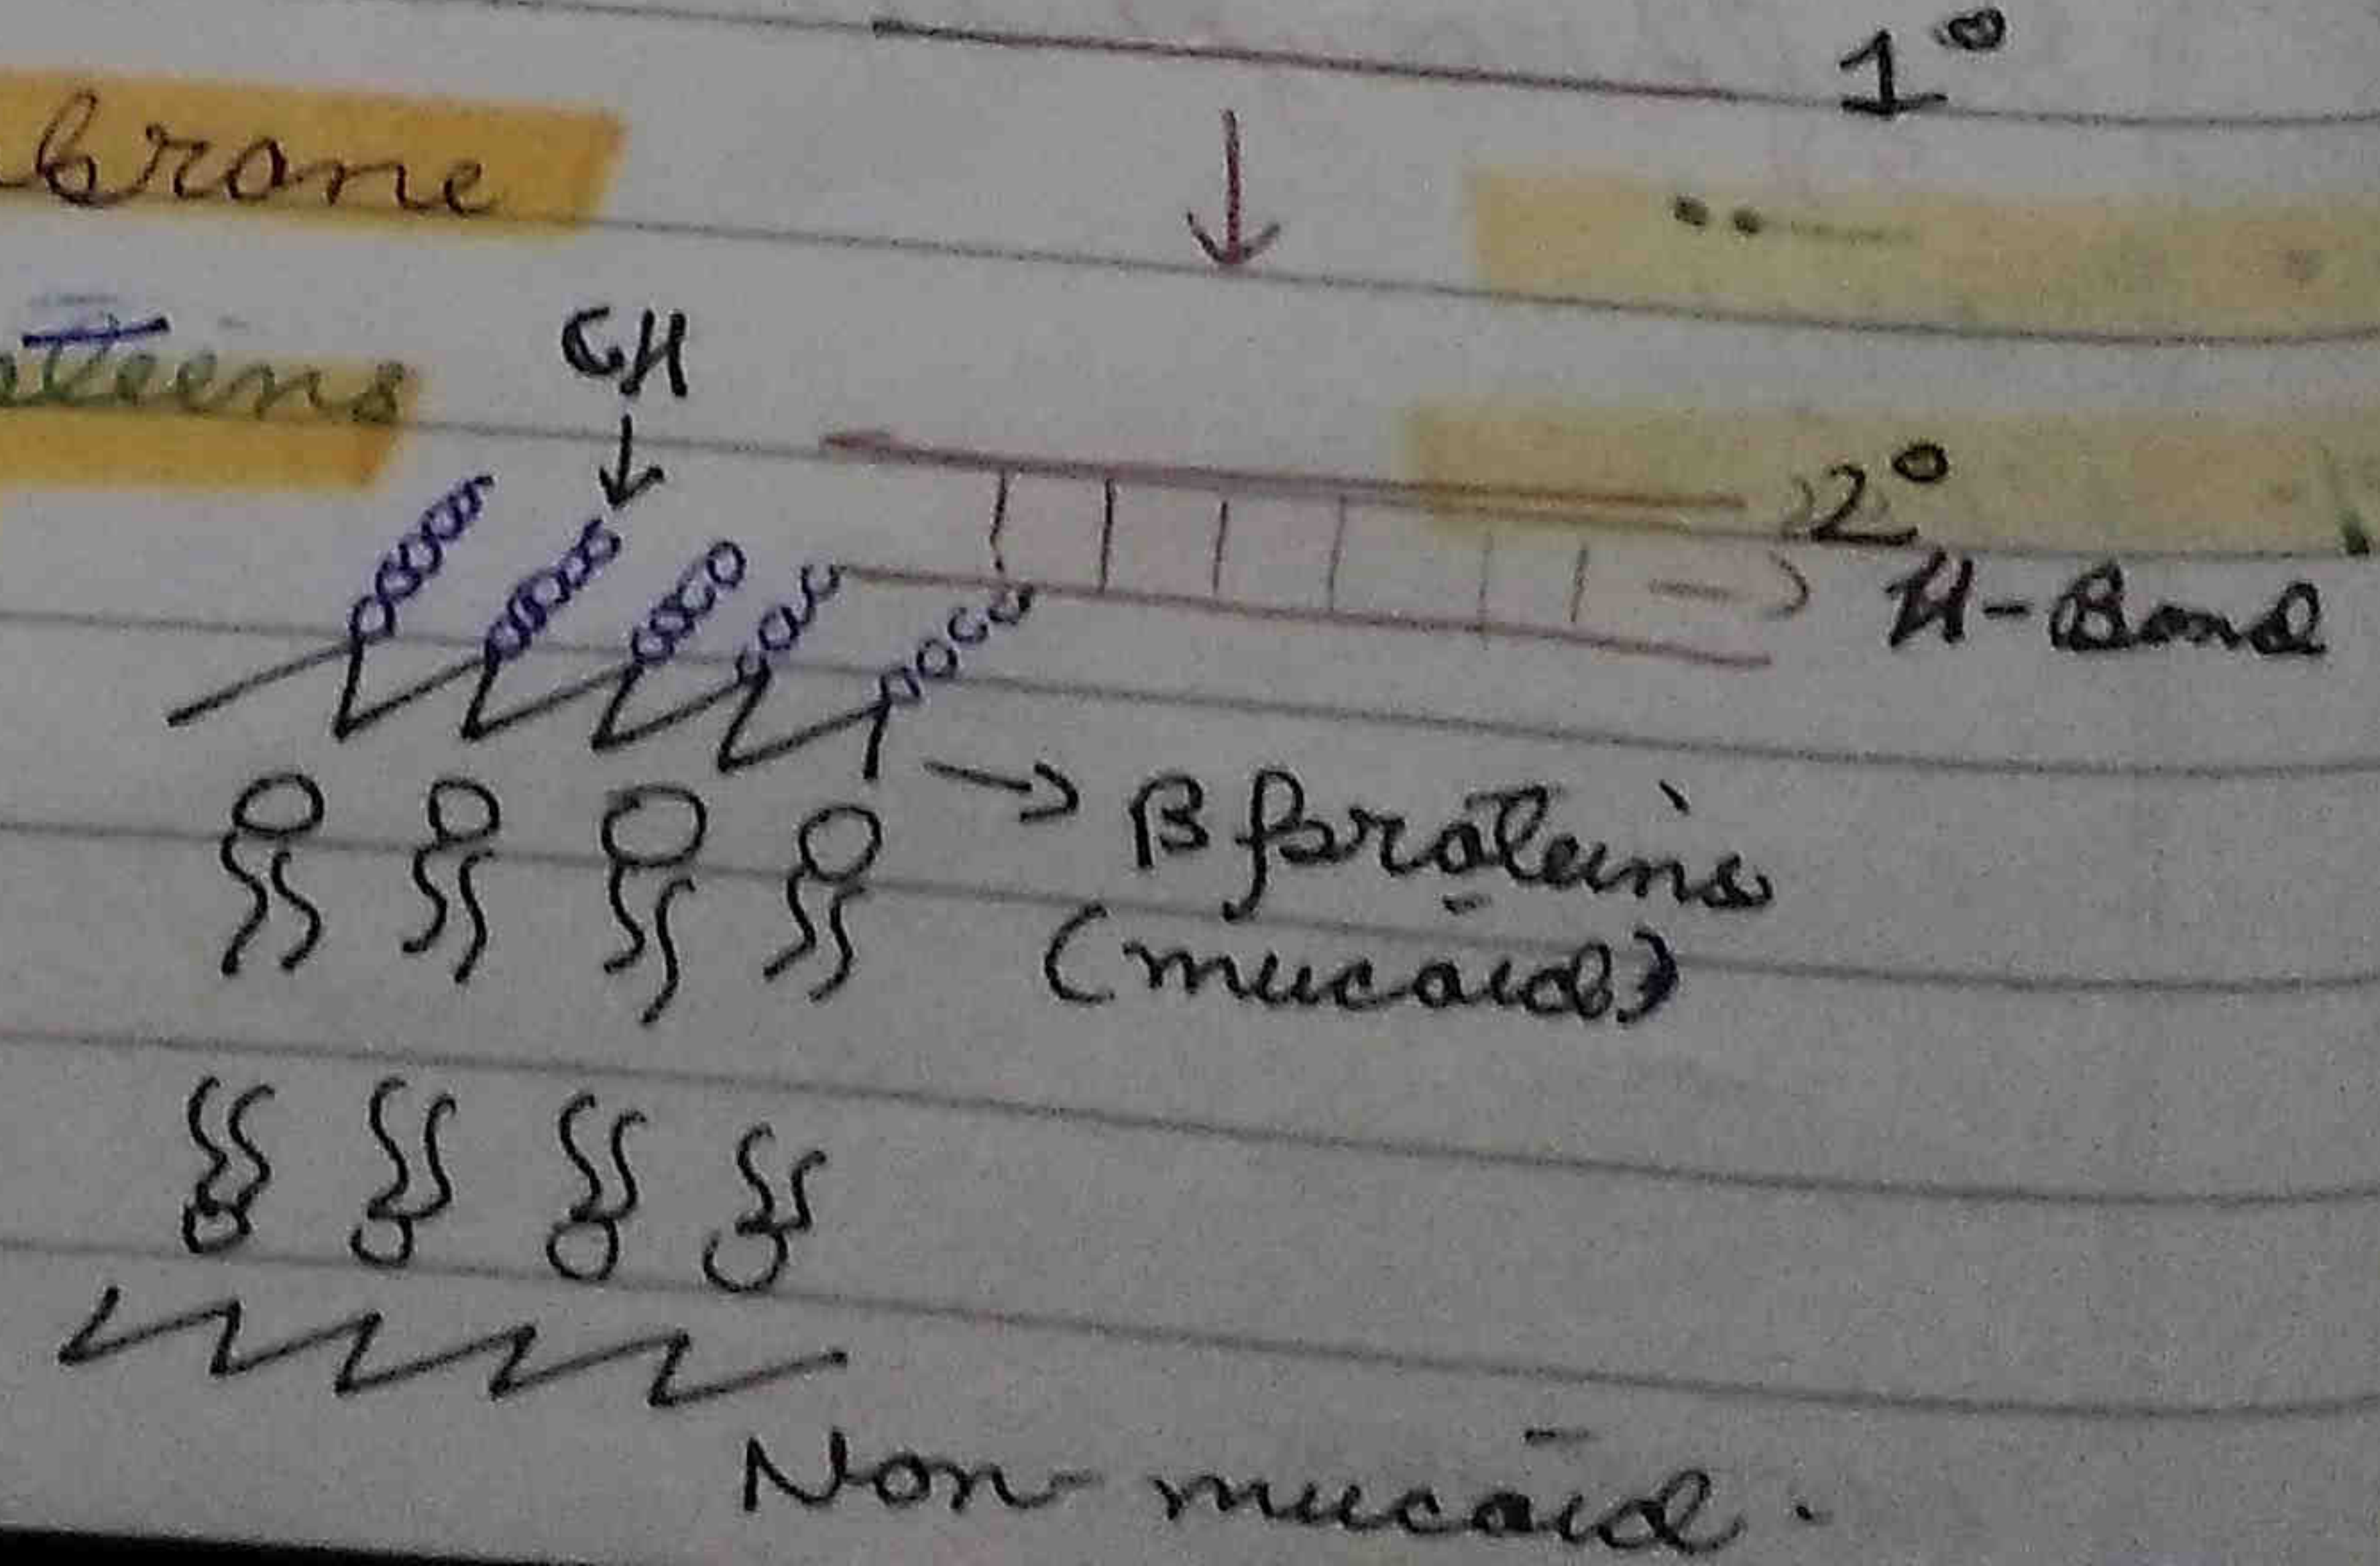 1°
brane
oteins
CH
2°
H-Bond
β proteins
(mucoid)
Non-mucoid.